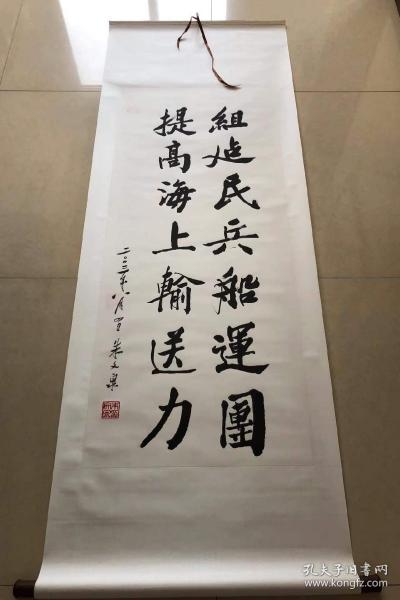 組建民兵船運團
提高海上輸送力
二〇〇三年八月 朱文泉
孔夫子旧书网
www.kongfz.com